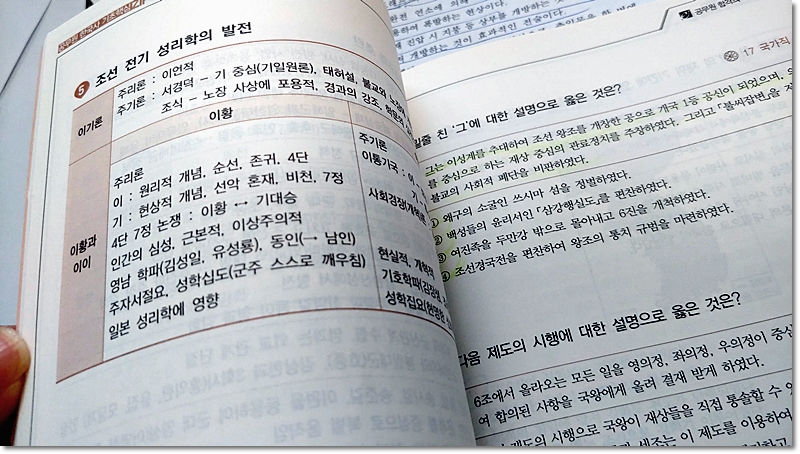 공무원 한국사 기초핵심
5 조선 전기 성리학의 발전
이기론
주리론 : 이언적
주기론 : 서경덕 – 기 중심(기일원론), 태허설, 불교와
조식 – 노장 사상에 포용적, 경과의 강조,
이황과
이이
이황
주리론
이 : 원리적 개념, 순선, 존귀, 4단
기 : 현상적 개념, 선악 혼재, 비천, 7정
4단 7정 논쟁 : 이황 ↔ 기대승
인간의 심성, 근본적, 이상주의적
영남 학파(김성일, 유성룡), 동인(→ 남인)
주자서절요, 성학십도(군주 스스로 깨우침)
일본 성리학에 영향
주기론
이통기국 : 이
사회경장(개혁)론
현실적, 개혁적
기호학파(김장생,
성학집요(현명한
공무원 합격의
17 국가직
밑줄 친 '그'에 대한 설명으로 옳은 것은?
그는 이성계를 추대하여 조선 왕조를 개창한 공으로 개국 1등 공신이 되었으며,
를 중심으로 하는 재상 중심의 관료정치를 주장하였다. 그리고 「불씨잡변」을
불교의 사회적 폐단을 비판하였다.
① 왜구의 소굴인 쓰시마 섬을 정벌하였다.
② 백성들의 윤리서인 「삼강행실도」를 편찬하였다.
③ 여진족을 두만강 밖으로 몰아내고 6진을 개척하였다.
④ 조선경국전을 편찬하여 왕조의 통치 규범을 마련하였다.
다음 제도의 시행에 대한 설명으로 옳은 것은?
6조에서 올라오는 모든 일을 영의정, 좌의정, 우의정이 중심
여 합의된 사항을 국왕에게 올려 결재 받게 하였다.
제도의 시행으로 국왕이 재상들을 직접 통솔할 수
세조는 이 제도를 이용하여